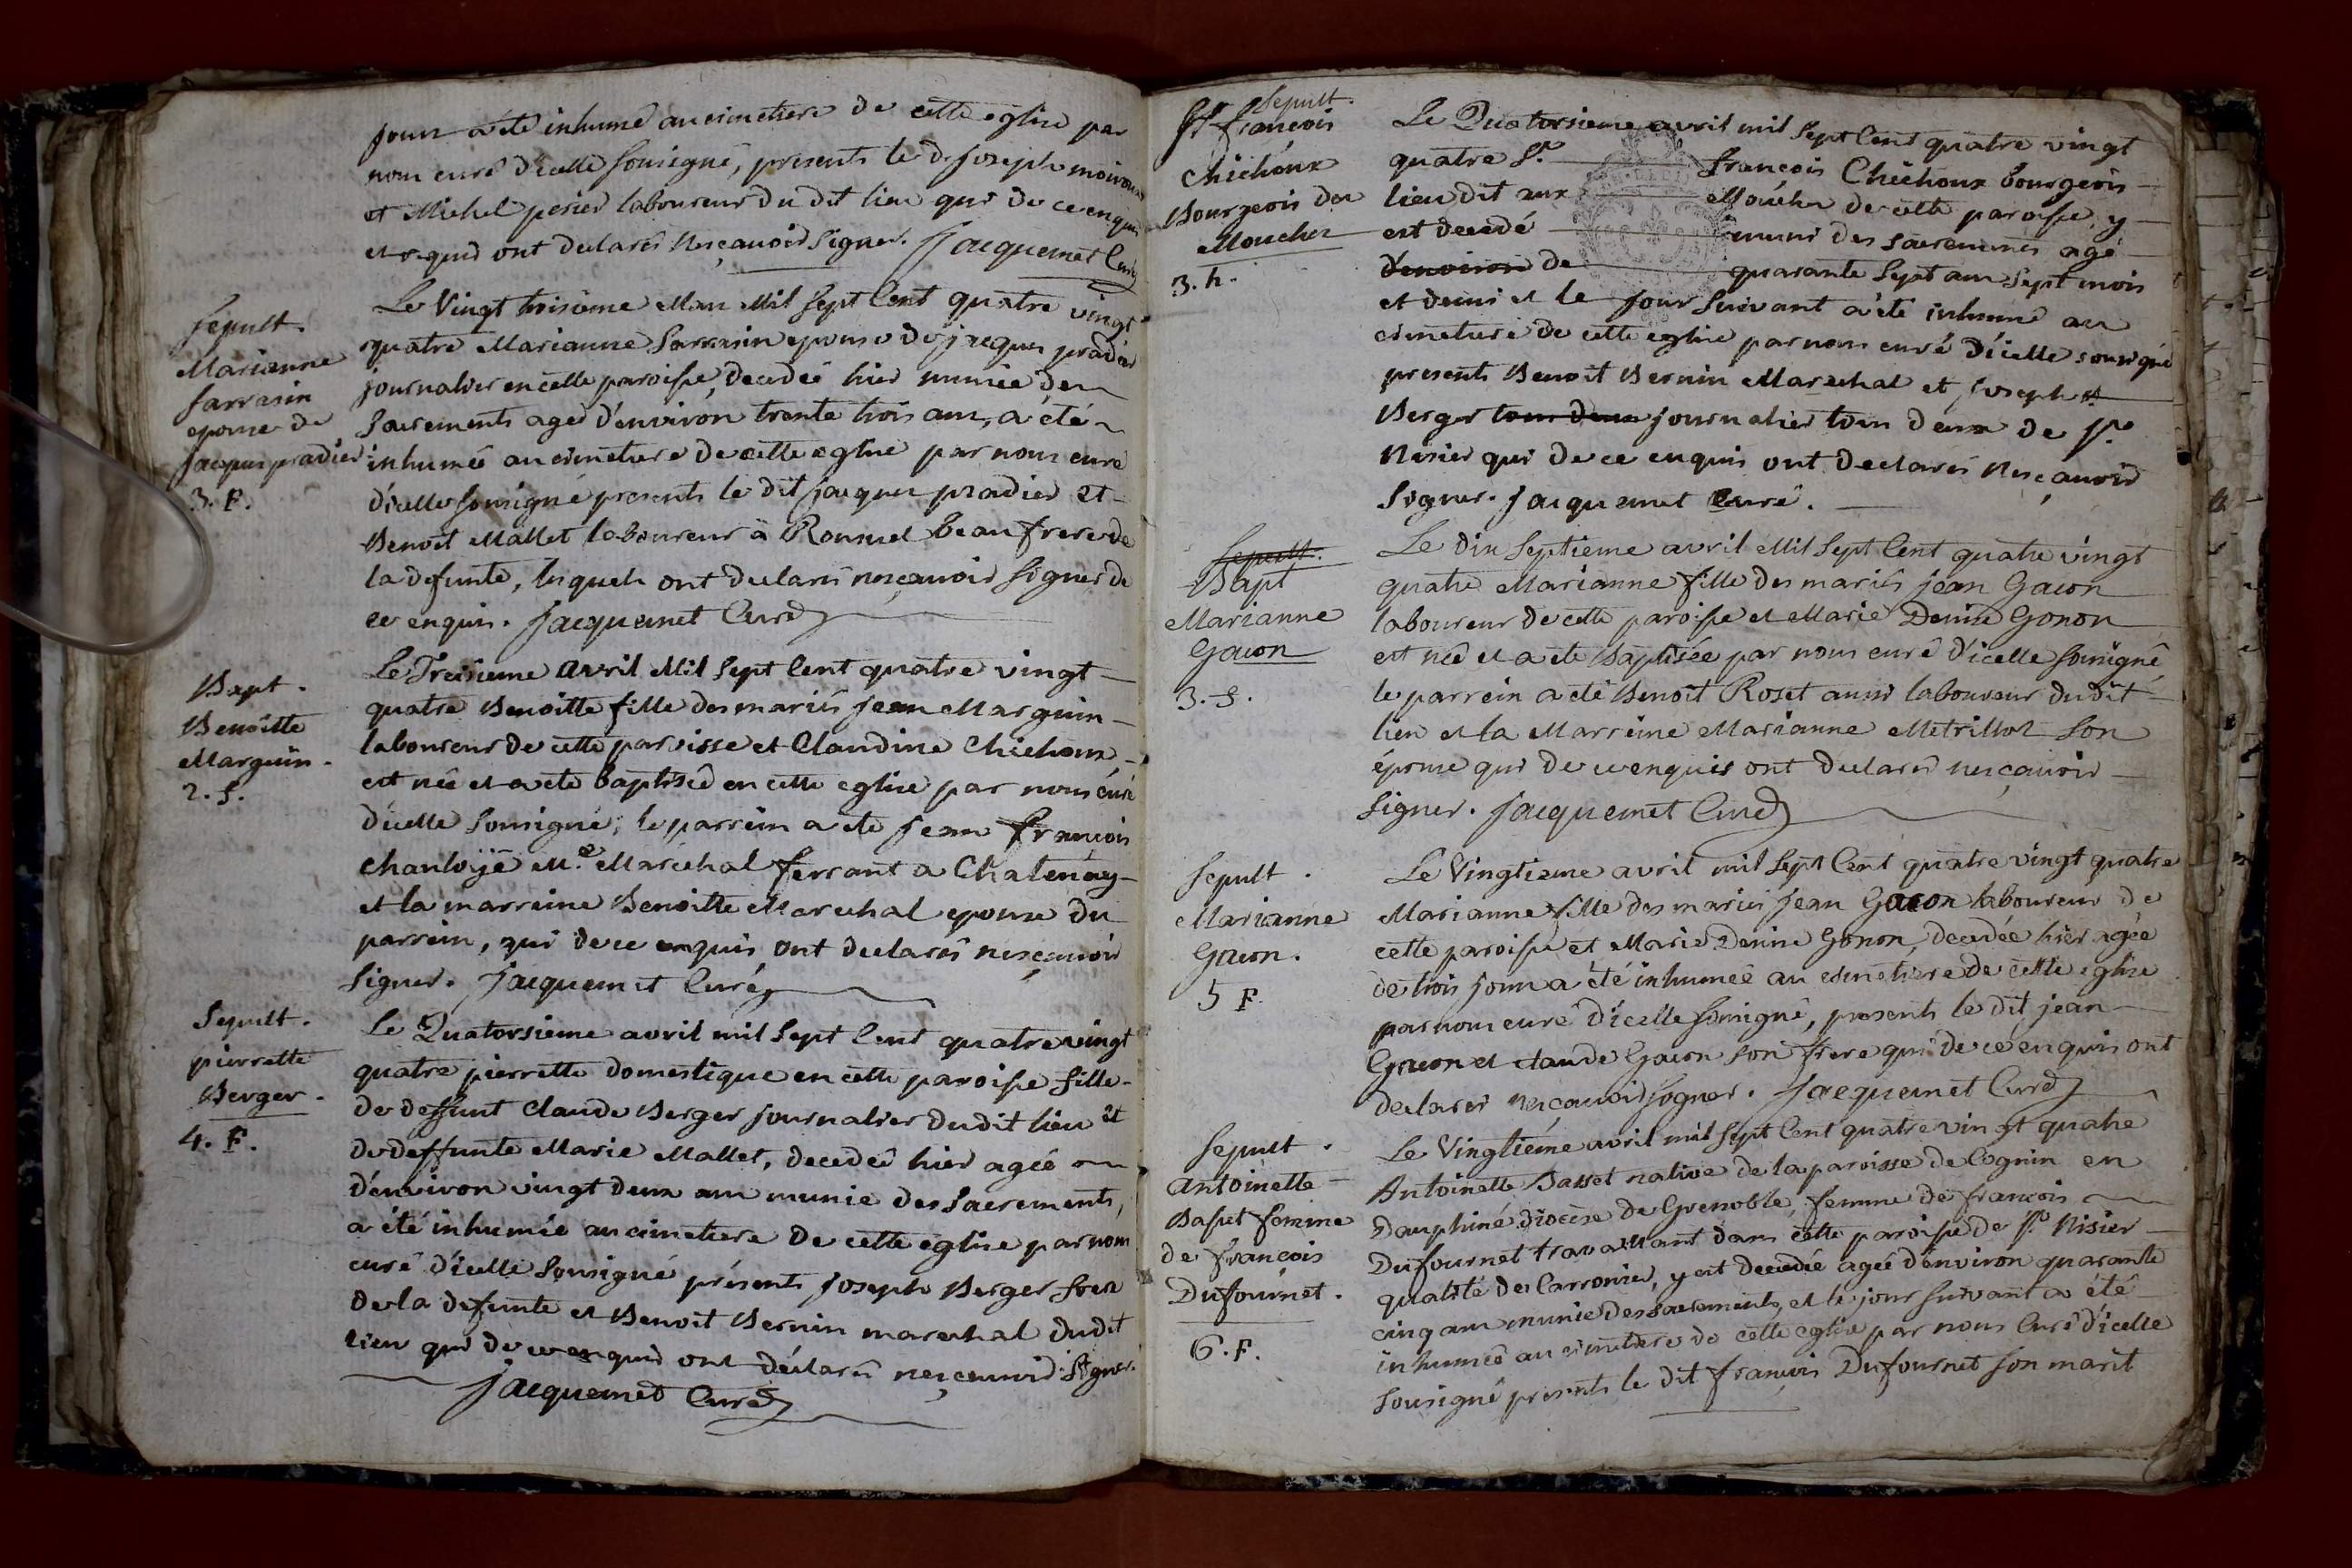 jour a été inhumé au cimetiere de cette eglise par
nous curé d'icelle sousigné, presents le d. joseph
et Michel perier laboureur du dit lieu qui de ce enquis
et requis ont declarés nesçauoir signer. Jacquemet Curé
Sepult.
Marianne
Sarrasin
epouse de
Jacques pradier
3. F.
Le Vingt troisieme Mars Mil Sept Cent quatre vingt
quatre Marianne Sarrasin epouse de jacques pradier
journalier en cette paroisse, decedeé hier munie des
Sacrements ageé d'environ trente trois ans, a été
inhumeé au cimetiere de cette eglise par nous curé
d'icelle sousigné presents le dit jacques pradier et
Benoit Mallet laboureur à Ronsuel beaufrere de
la defunte, lesquels ont declarés nesçauoir signer de
ce enquis. Jacquemet Curé
Bapt.
Benoitte
Marguin.
2. f.
Le Treisieme avril Mil Sept Cent quatre vingt
quatre Benoitte fille des mariés jean Marguin
laboureur de cette paroisse et Claudine Chichoux
est neé et a ete baptiseé en cette eglise par nous curé
d'icelle sousigné; le parrein a ete jean francois
chanloÿé M.e Maréchal ferrant a Chatenay
et la marreine Benoitte Marechal epouse du
parrein, qui de ce enquis ont declarés nesçauoir
signer. Jacquemet Curé
Sepult.
pierrette
Berger.
4. F.
Le Quatorsieme avril mil Sept Cent quatre vingt
quatre pierrette domestique en cette paroisse fille
de deffunt Claude Berger journalier dudit lieu et
de deffunte Marie Mallet, decedeé hier ageé
d'environ vingt deux ans munie des sacrements,
a été inhumée au cimetiere de cette eglise par nous
curé d'icelle sousigné présents joseph Berger frere
de la defunte et Benoit Bernin marechal dudit
lieu qui de ce enquis ont déclarés nesçauoir signer.
Jacquemet Curé
Sepult.
Sr francois
Chichoux
Bourgeois des
Mouches
3. h.
Le Quatorsieme avril mil Sept Cent quatre vingt
quatre Sr. francois Chichoux bourgeois
lieu dit aux Mouches de cette paroisse, y
est decedé muni des sacrements agé
d'environ de quarante sept ans sept mois
et demi et le jour suivant a été inhumé au
cimetiere de cette eglise par nous curé d'icelle sousigné
presents Benoit Bernin Marechal et joseph
Berger tous deux journalier tous deux de St.
Nisier qui de ce enquis ont declarés nesçauoir
signer. Jacquemet Curé.
Sepult.
Bapt
Marianne
Gacon
3. f.
Le dix Septieme avril Mil Sept Cent quatre vingt
quatre Marianne fille des mariés jean Gacon
laboureur de cette paroisse et Marie Denise Gonon
est neé et a ete baptisée par nous curé d'icelle sousigné,
le parrein a eté Benoît Roset aussi laboureur du dit
lieu et la Marreine Marianne Metrillot son
épouse qui de ce enquis ont declarés nesçauoir
signer. Jacquemet Curé
Sepult.
Marianne
Gacon.
5 F.
Le Vingtieme avril mil Sept Cent quatre vingt quatre
Marianne fille des mariés jean Gacon laboureur de
cette paroisse et Marie Denise Gonon, decedée hier agée
de trois jours a été inhumeé au cimetiere de cette eglise
par nous curé d'icelle sousigné, presents le dit jean
Gacon et claude Gacon son frere qui de ce enquis ont
declarés nesçauoir signer. Jacquemet Curé
Sepult.
Antoinette
Basset femme
de francois
Dufournet.
6. F.
Le Vingtiéme avril mil Sept Cent quatre vingt quatre
Antoinette Basset native de la paroisse de Cognin en
Dauphiné diocèse de Grenoble, femme de francois
Dufournet travaillant dans cette paroisse de St. Nisier
qualité de Carronier, y est decedeé ageé d'environ quarante
cinq ans munie des sacrements, et le jour suivant a été
inhumeé au cimetiere de cette eglise par nous curé d'icelle
sousigné presents le dit francois Dufournet son marit